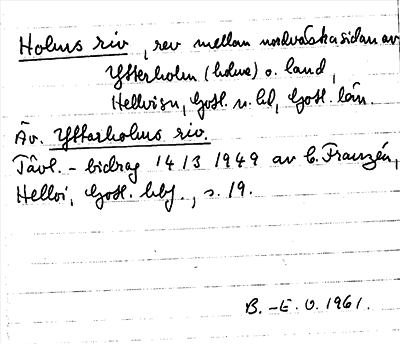 Holms riv, rev mellan nordvästra sidan av
Ytterholm (holme) o. land,
Hellvi sn, Gotl. n. hd, Gotl. län.
Äv. Ytterholms riv.
Tävl. - bidrag 14 13 1949 av C. Franzén,
Hellvi, Gotl. hbf., s. 19.
B. - E. O. 1961.